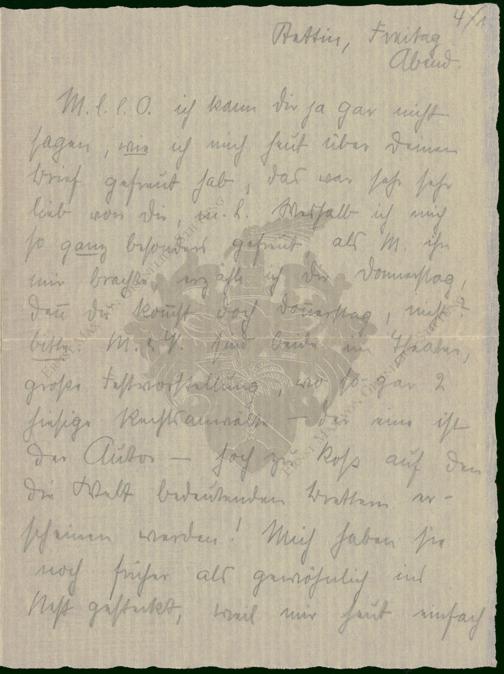 4/1
Stettin, Freitag
Abend.
M. l. l. O. ich kann dir ja gar nicht
sagen, wie ich mich heut über deinen
Brief gefreut hab, das war sehr sehr
lieb von dir, m. l. Weshalb ich mich
so ganz besonders gefreut als M. ihn
mir brachte erzähle ich dir Donnerstag,
denn du kommst doch Donnerstag, nicht?
bitte. M. u. V. sind beide im Theater,
große Festvorstellung, wo so gar 2
hiesige Rechtsanwälte — der eine ist
der Autor — hoch zu Roß auf den
die Welt bedeutenden Brettern er-
scheinen werden! Mich haben sie
noch früher als gewöhnlich ins
Nest gesteckt, weil mir heut einfach